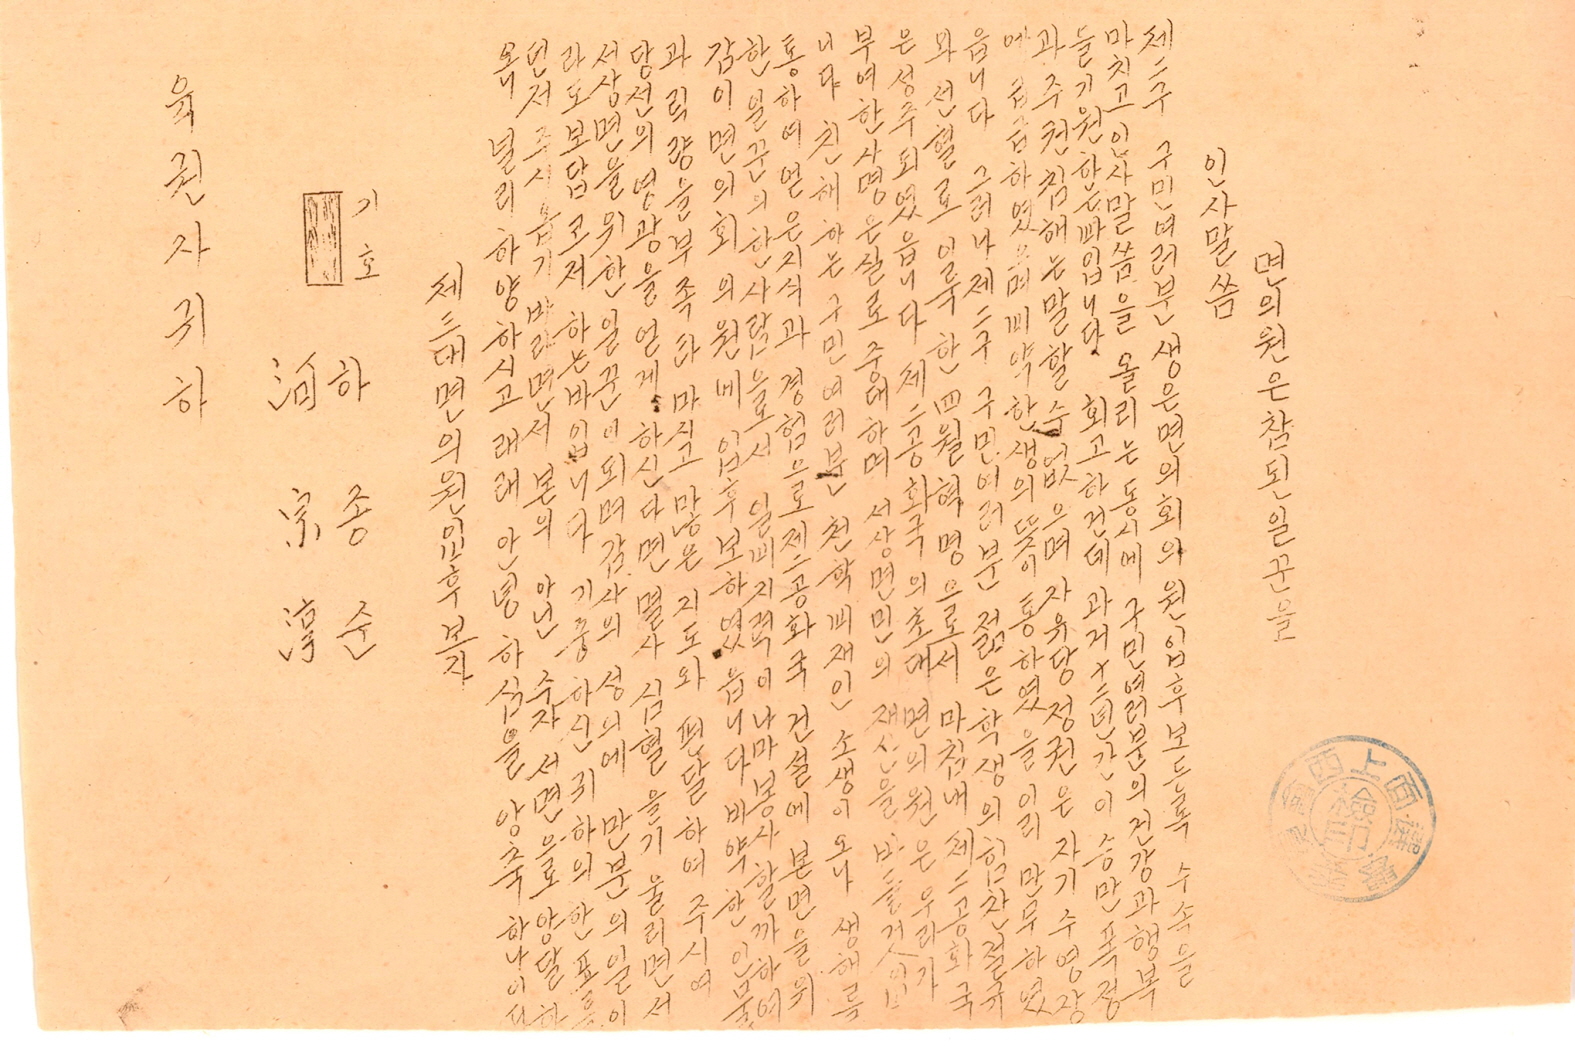 면의원은 참된 일꾼을
인사말씀
제二구 구민여러분 생은 면의회의원 입후보등록 수속을
마치고 인사말씀을 올리는 동시에 구민여러분의 건강과 행복
들기원한는바입니다. 회고하건데 과거 十二년간 이승만 폭정
과 주권침해는 말할수 없으며 자유당정권은 자기수영장
에 급급하였으며 미약한생의 뜻이 통하였을이리 만무하였
읍니다 그러나 제二구 구민여러분 젊은학생의 힘찬 절규
와 선혈로 이룩한 四월혁명으로서 마침내 제二공화국
은 성주되였읍니다 제二공화국의 초대 면의원은 우리가
부여한사명은 실로 중대하며 서상면민의 재신을 바들것입
니다 친해하는 구민여러분 천학비재인 소생이오나 생해륵
통하여 얻은지식과 경험으로 제二공화국 건설에 본면을위
한 일꾼의한사람으로서 일비지력이나마 봉사할까하여
감이 면의회의원에 입후보하였읍니다 바약한 인물
과 력량을 부족타마시고 많은 지도와 편달하여 주시여
당선의 영광을 얻게 하신다면 멸사 심혈을기울리면서
서상면을 위한 일꾼이되며 감사의 성의에 만분의일이
라도 보답코저 하는바입니다 기중하신 귀하의 한표를
던저주시옵기 바라면서 본의 아닌 수자 서면으로 앙달하
오니 널리 하양하시고 래래 안녕하심을 앙축하나이다
제三대면의원입후보자
기호
하종순
河宗淳
육권자귀하
西上面選擧